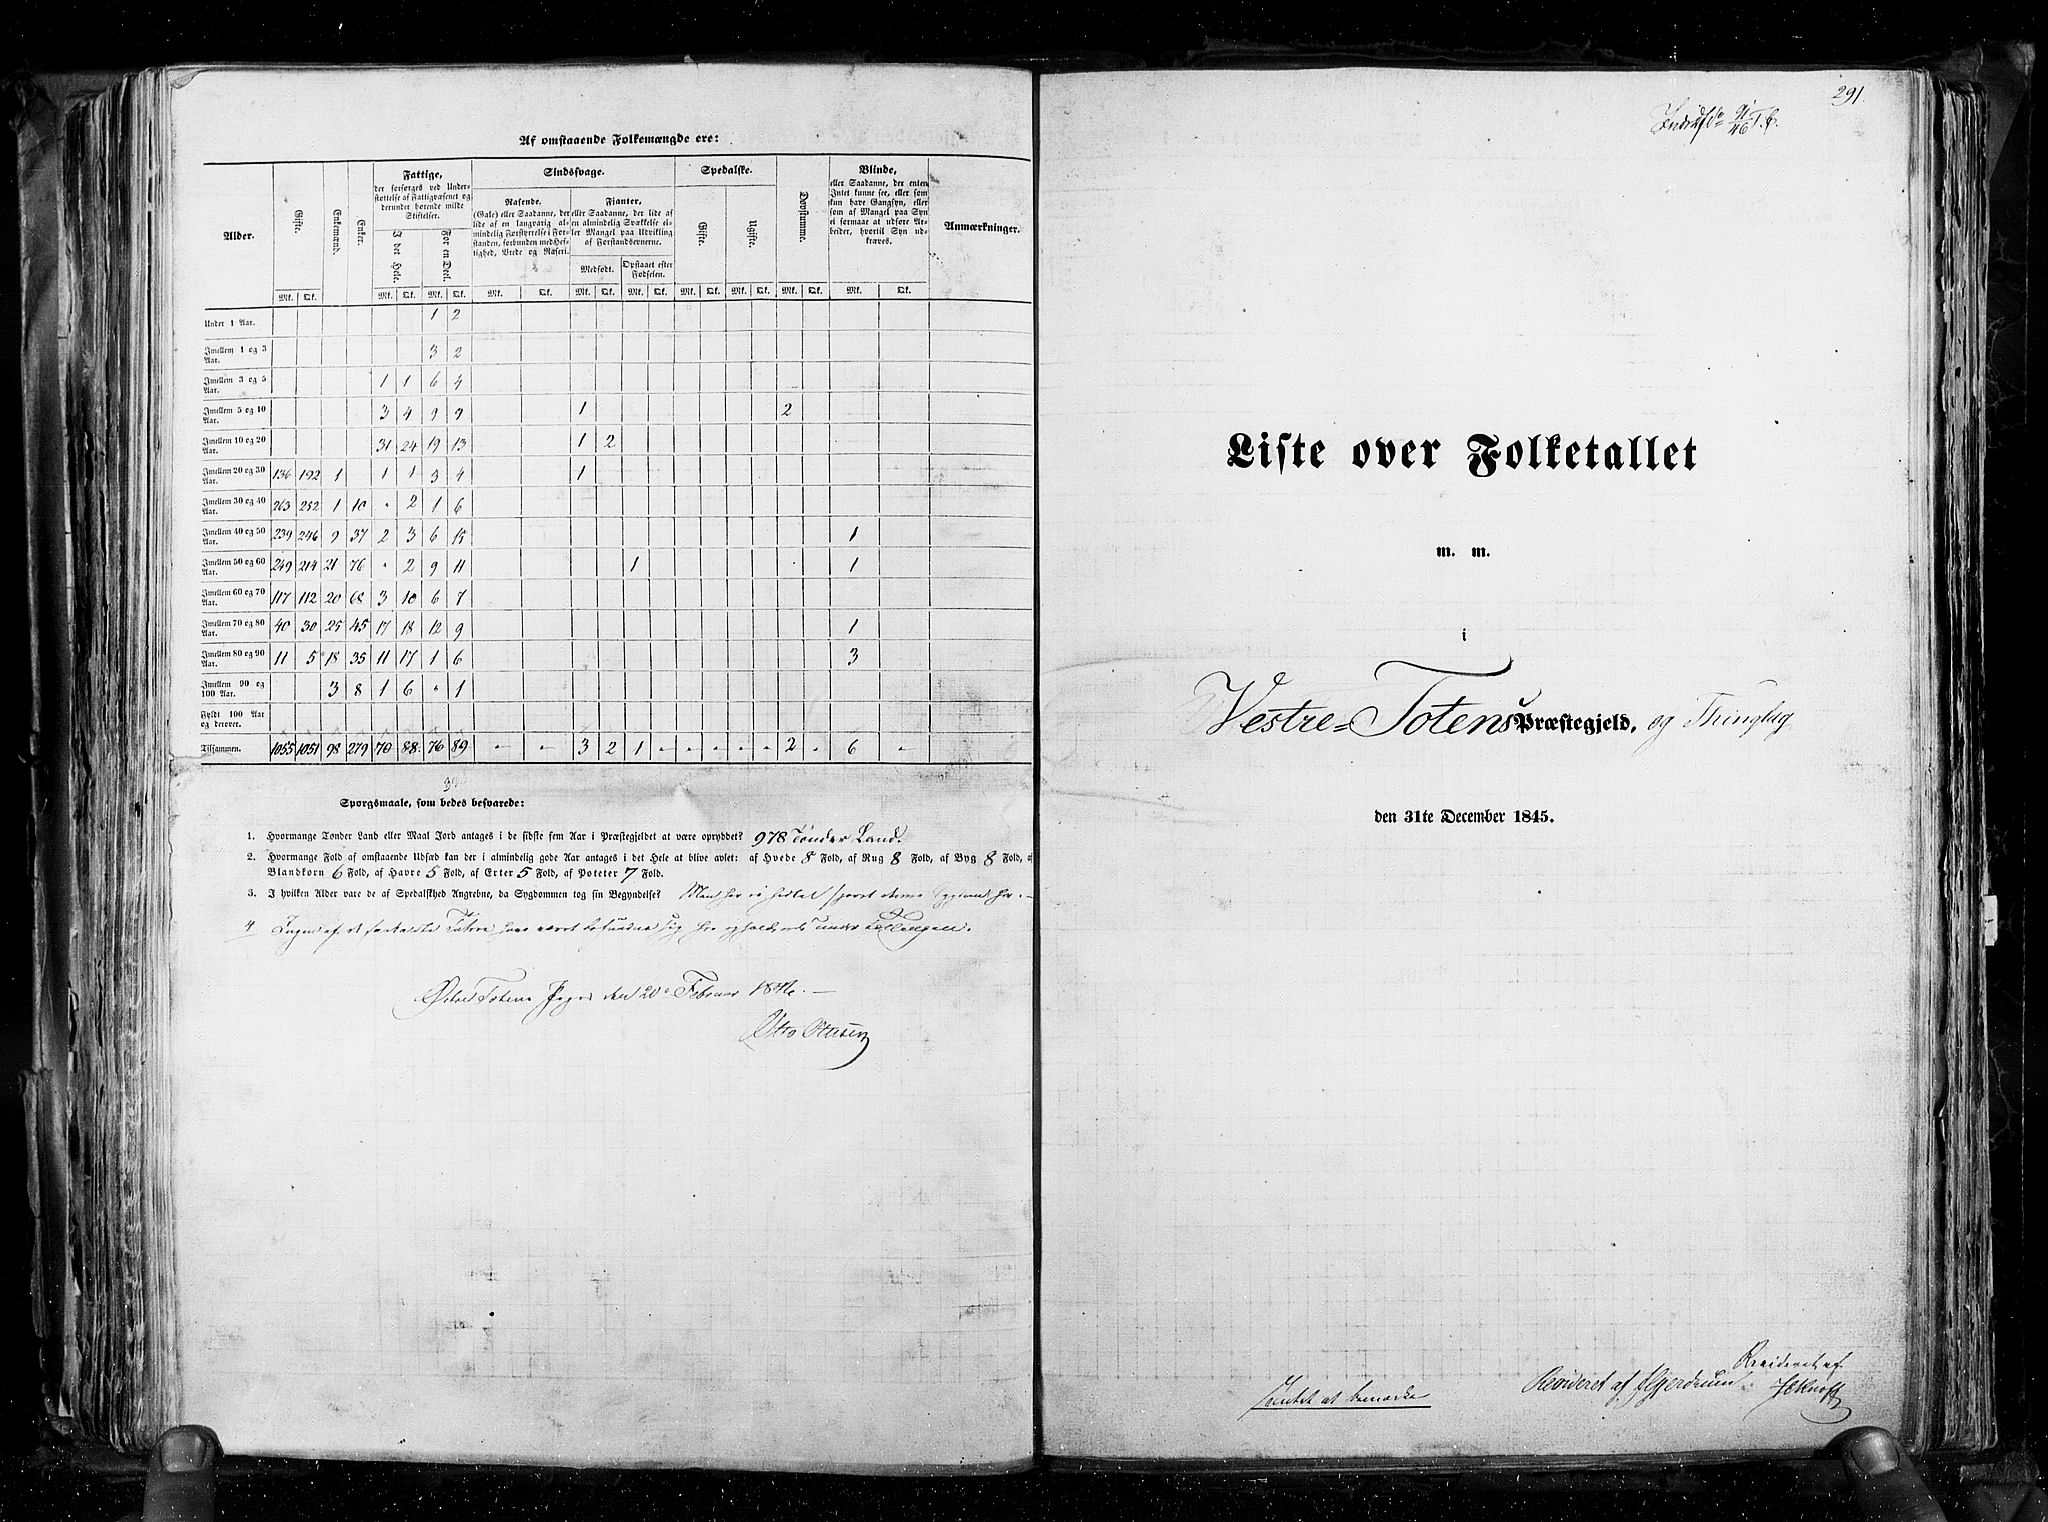 Af omstaaende Folkemængde ere:
Alder.
Gifte.
Enkemænd.
Enker.
Fattige,
der forsørges ved Under-
støttelse af Fattigvæsenet og
derunder hørende milde
Stiftelser.
I det Hele.
For en Deel.
Sindssvage.
Rasende.
(Gale) eller Saadanne, der
lide af en langvarig al-
mindelig Forstyrrelse i For-
standen, forbunden med Hef-
tighed, Vrede og Raseri.
Fjanter,
eller Saadanne, der lide af
en almindelig Svækkelse el-
ler Mangel paa Udvikling
af Forstandsevnerne.
Medfødt.
Opstaaet efter
Fødselen.
Spedalske.
Gifte.
Ugifte.
Døvstumme.
Blinde,
eller Saadanne, der enten
Intet kunne see, eller som
kun have Gangsyn, eller
som af Mangel paa Syn
ei formaae at udføre Ar-
beider, hvortil Syn ud-
kræves.
Anmærkninger.
Mk. Qk. Mk. Qk. Mk. Qk. Mk. Qk. Mk. Qk. Mk. Qk. Mk. Qk. Mk. Qk. Mk. Qk. Mk. Qk.
Under 1 Aar. 1 2
Imellem 1 og 3 Aar. 3 2
Imellem 3 og 5 Aar. 1 1 6 4
Imellem 5 og 10 Aar. 3 4 9 9 1 2
Imellem 10 og 20 Aar. 31 24 19 13 1 2
Imellem 20 og 30 Aar. 136 192 1 1 1 3 4 1
Imellem 30 og 40 Aar. 263 252 1 10 " 2 1 6
Imellem 40 og 50 Aar. 239 246 9 37 2 3 6 15 1
Imellem 50 og 60 Aar. 249 214 21 76 " 2 9 11 1 1
Imellem 60 og 70 Aar. 117 112 20 68 3 10 6 7
Imellem 70 og 80 Aar. 40 30 25 45 17 18 12 9 1
Imellem 80 og 90 Aar. 11 5 18 35 11 17 1 6 3
Imellem 90 og 100 Aar. 3 8 1 6 " 1
Fyldt 100 Aar og derover.
Tilsammen. 1055 1051 98 279 70 88 76 89 " " 3 2 1 " " " " " 2 " 6 "
Spørgsmaale, som bedes besvarede:
1. Hvormange Tønder Land eller Maal Jord antages i de sidste fem Aar i Præstegjeldet at være opryddet? 978 Tønder Land.
2. Hvormange Fold af omstaaende Udsæd kan der i almindelig gode Aar antages i det Hele at blive avlet: af Hvede 8 Fold, af Rug 8 Fold, af Byg 8 Fold, af
Blandkorn 6 Fold, af Havre 5 Fold, af Erter 5 Fold, af Poteter 7 Fold.
3. I hvilken Alder vare de af Spedalskhed Angrebne, da Sygdommen tog sin Begyndelse? Man har ei sporet denne Sygdom her.
4 Ingen af
Østre Totens den 20 Februar 1846.
Otto Ottesen
291.
Liste over Folketallet
m. m.
i
Vestre-Totens Præstegjeld, og Thinglag
den 31te December 1845.
Intet at bemærke
Revideret af
Revideret af